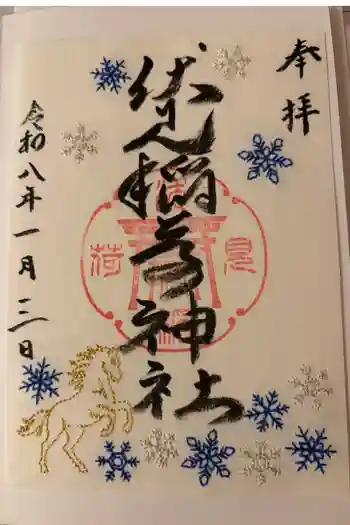 奉拝
伏見稲荷神社
伏見稲荷
令和八年一月三日